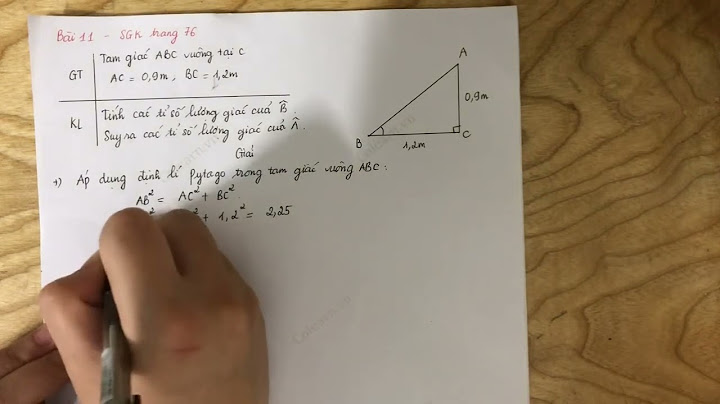 Bài 11 - SGK trang 76
GT Tam giác ABC vuông tại C
AC = 0,9m, BC = 1,2m
KL Tính các tỉ số lượng giác của B̂.
Suy ra các tỉ số lượng giác của Â.
Giải
+) Áp dụng định lí Pytago trong tam giác vuông ABC:
AB² = AC² + BC²
² + 1,2² = 2,25
A
0,9m
B
C
1,2m
Colearn.vn